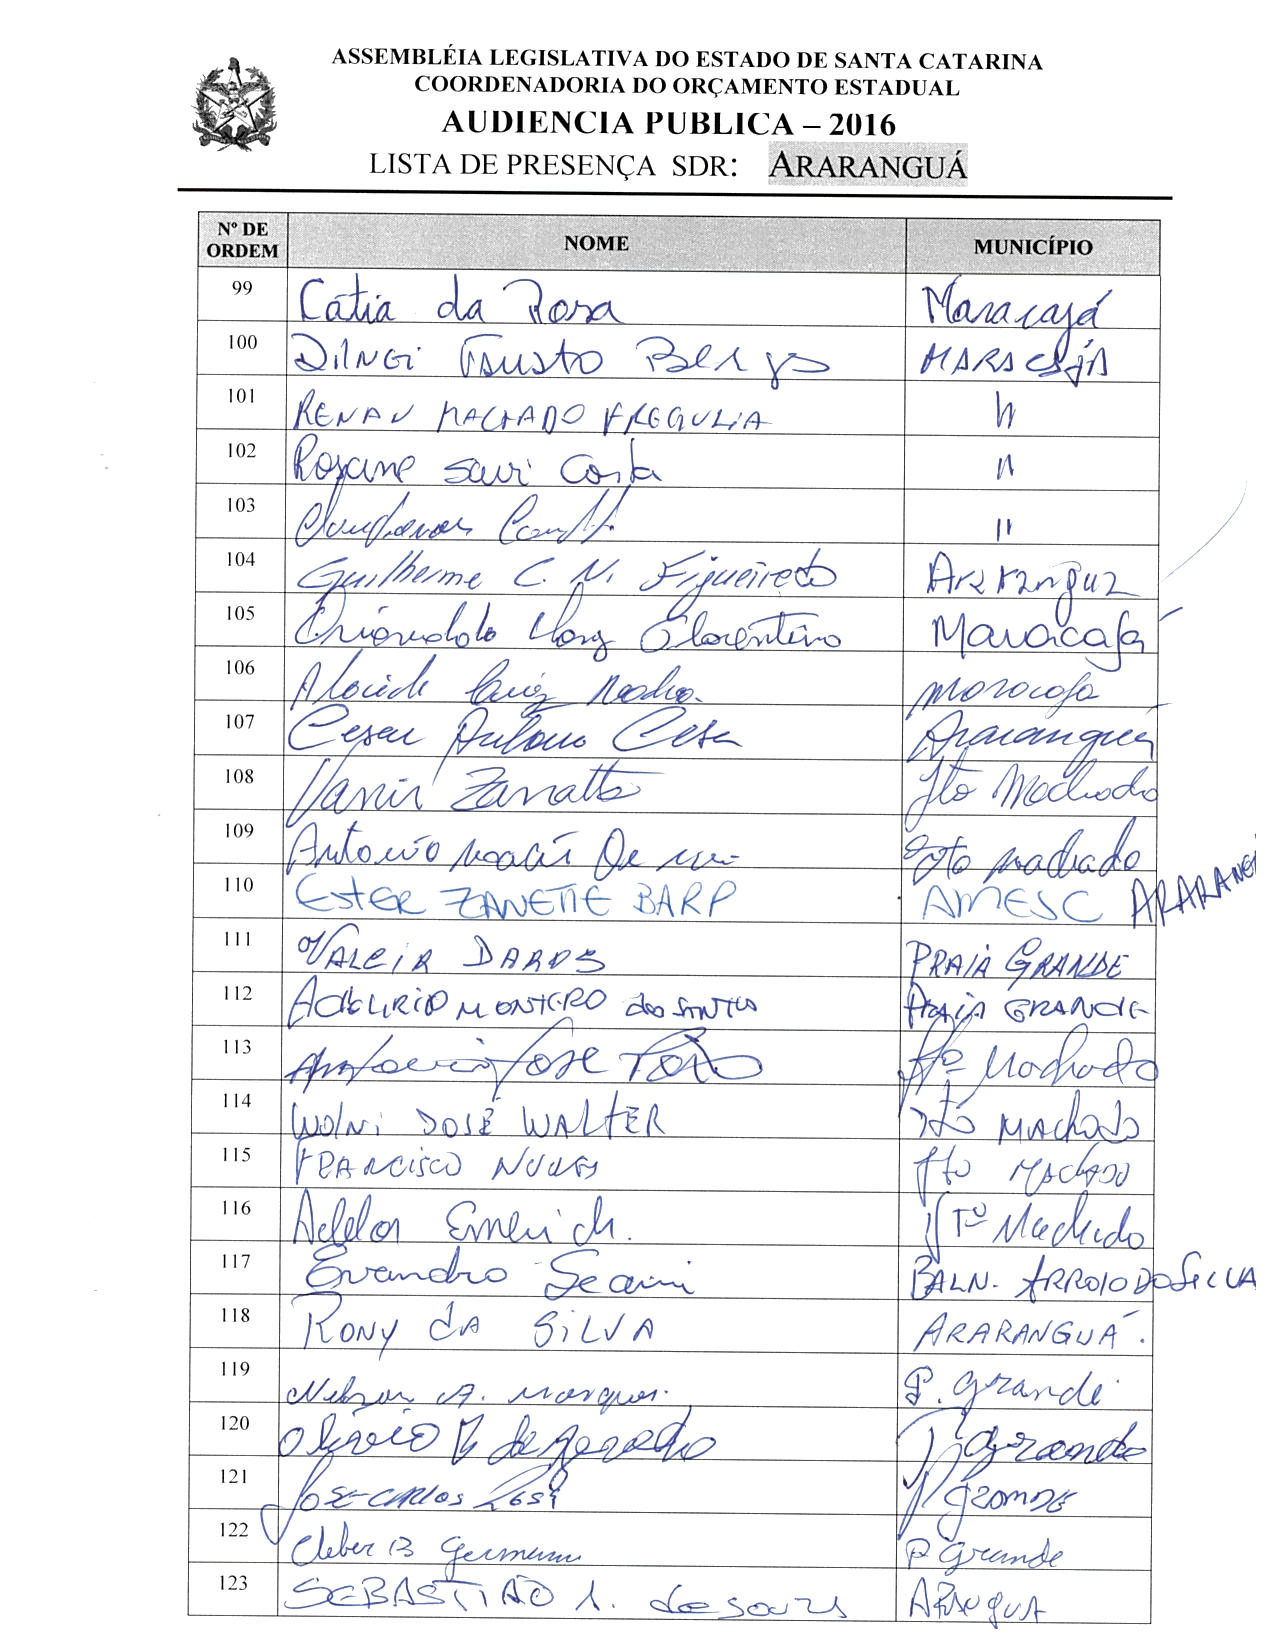 ASSEMBLÉIA LEGISLATIVA DO ESTADO DE SANTA CATARINA
COORDENADORIA DO ORÇAMENTO ESTADUAL
AUDIENCIA PUBLICA – 2016
LISTA DE PRESENÇA SDR: ARARANGUÁ
Nº DE ORDEM NOME MUNICÍPIO
99 Cátia da Rosa Maracajá
100 Fausto MARACAJÁ
101 RENAN MACHADO FREGULIA "
102 Rosane Savi Costa "
103 "
104 Guilherme C. N. Figueiredo Ararangua
105 Florentino Maracajá
106 Luiz Maracaja
107 Cesar Antonio Cesa Araranguá
108 Vanir Zanatta Jto Machado
109 Antonio Moacir De Jto Machado
110 ESTER ZANETTE BARP AMESC ARARANG
111 VALCIR DAROS PRAIA GRANDE
112 MONTERO dos SANTOS PRAIA GRANDE
113 José Jtº Machado
114 WOLNI JOSÉ WALTER Jtº MACHADO
115 FRANCISCO NUNES Jto MACHADO
116 Adelor Emerich. J Tº Machado
117 Evandro Scaini BALN. ARROIO DO SILVA
118 RONY DA SILVA ARARANGUÁ.
119 Nelson A. Marques. P. Grande
120 Grande
121 JOSE CARLOS P GRANDE
122 Cleber B Germann P Grande
123 SEBASTIÃO de Souza